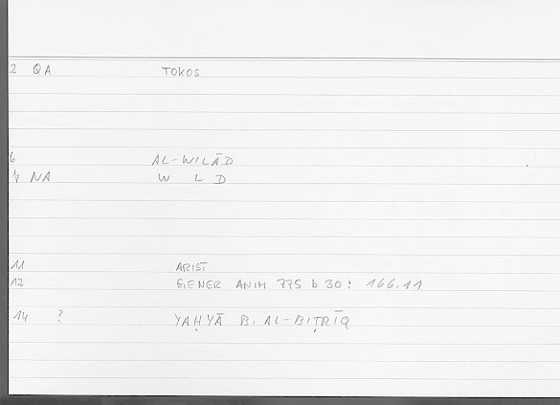 2 QA TOKOS
6 AL-WILĀD
7 NA W L D
11 ARIST
12 GENER ANIM 775 b 30: 166.11
14 ? YAḤYĀ B. AL-BIṬRĪQ